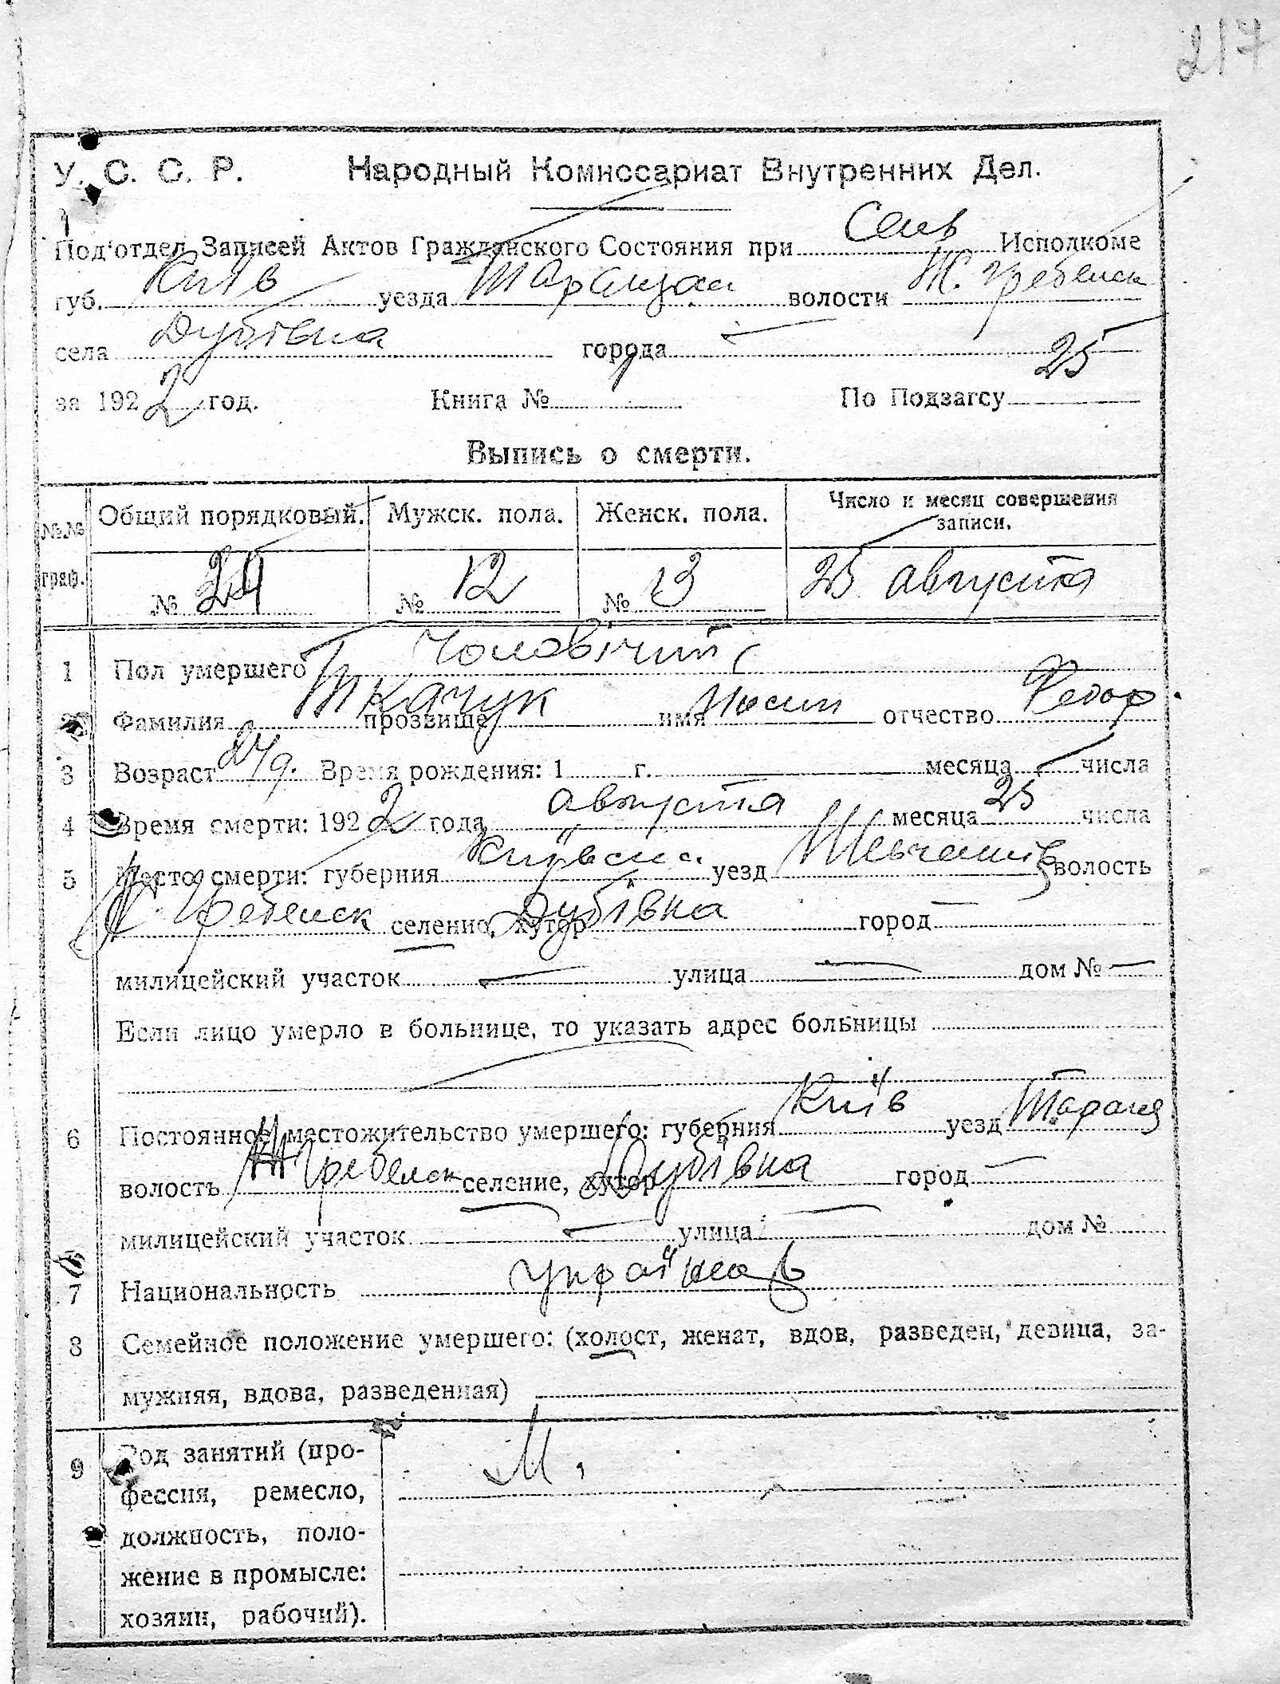 217
У. С. С. Р. Народный Комиссариат Внутренних Дел.
Под'отдел Записей Актов Гражданского Состояния при Сель Исполкоме
губ. Київ уезда Таращан волости Ж. Гребельск
села Дубівка города
за 1922 год. Книга № 1 По Подзагсу 25
Выпись о смерти.
№№ граф. Общий порядковый. Мужск. пола. Женск. пола. Число и месяц совершения записи.
№ 24 № 12 № 13 25 августа
1 Пол умершего Чоловічий
Фамилия Ткачук прозвище имя Иосип отчество Федор.
3 Возраст Время рождения: 1 г. месяца числа
4 Время смерти: 1922 года августа месяца 25 числа
5 Место смерти: губерния Київськ. уезд волость
Ж Гребельск селение, хутор Дубівка город
милицейский участок улица дом № —
Если лицо умерло в больнице, то указать адрес больницы
6 Постоянное местожительство умершего: губерния Київ уезд Таращ.
волость Ж Гребельск селение, хутор Дубівка город —
милицейский участок улица дом №
7 Национальность
8 Семейное положение умершего: (холост, женат, вдов, разведен, девица, за-
мужняя, вдова, разведенная)
9 Род занятий (про- М.
фессия, ремесло,
должность, поло-
жение в промысле:
хозяин, рабочий).